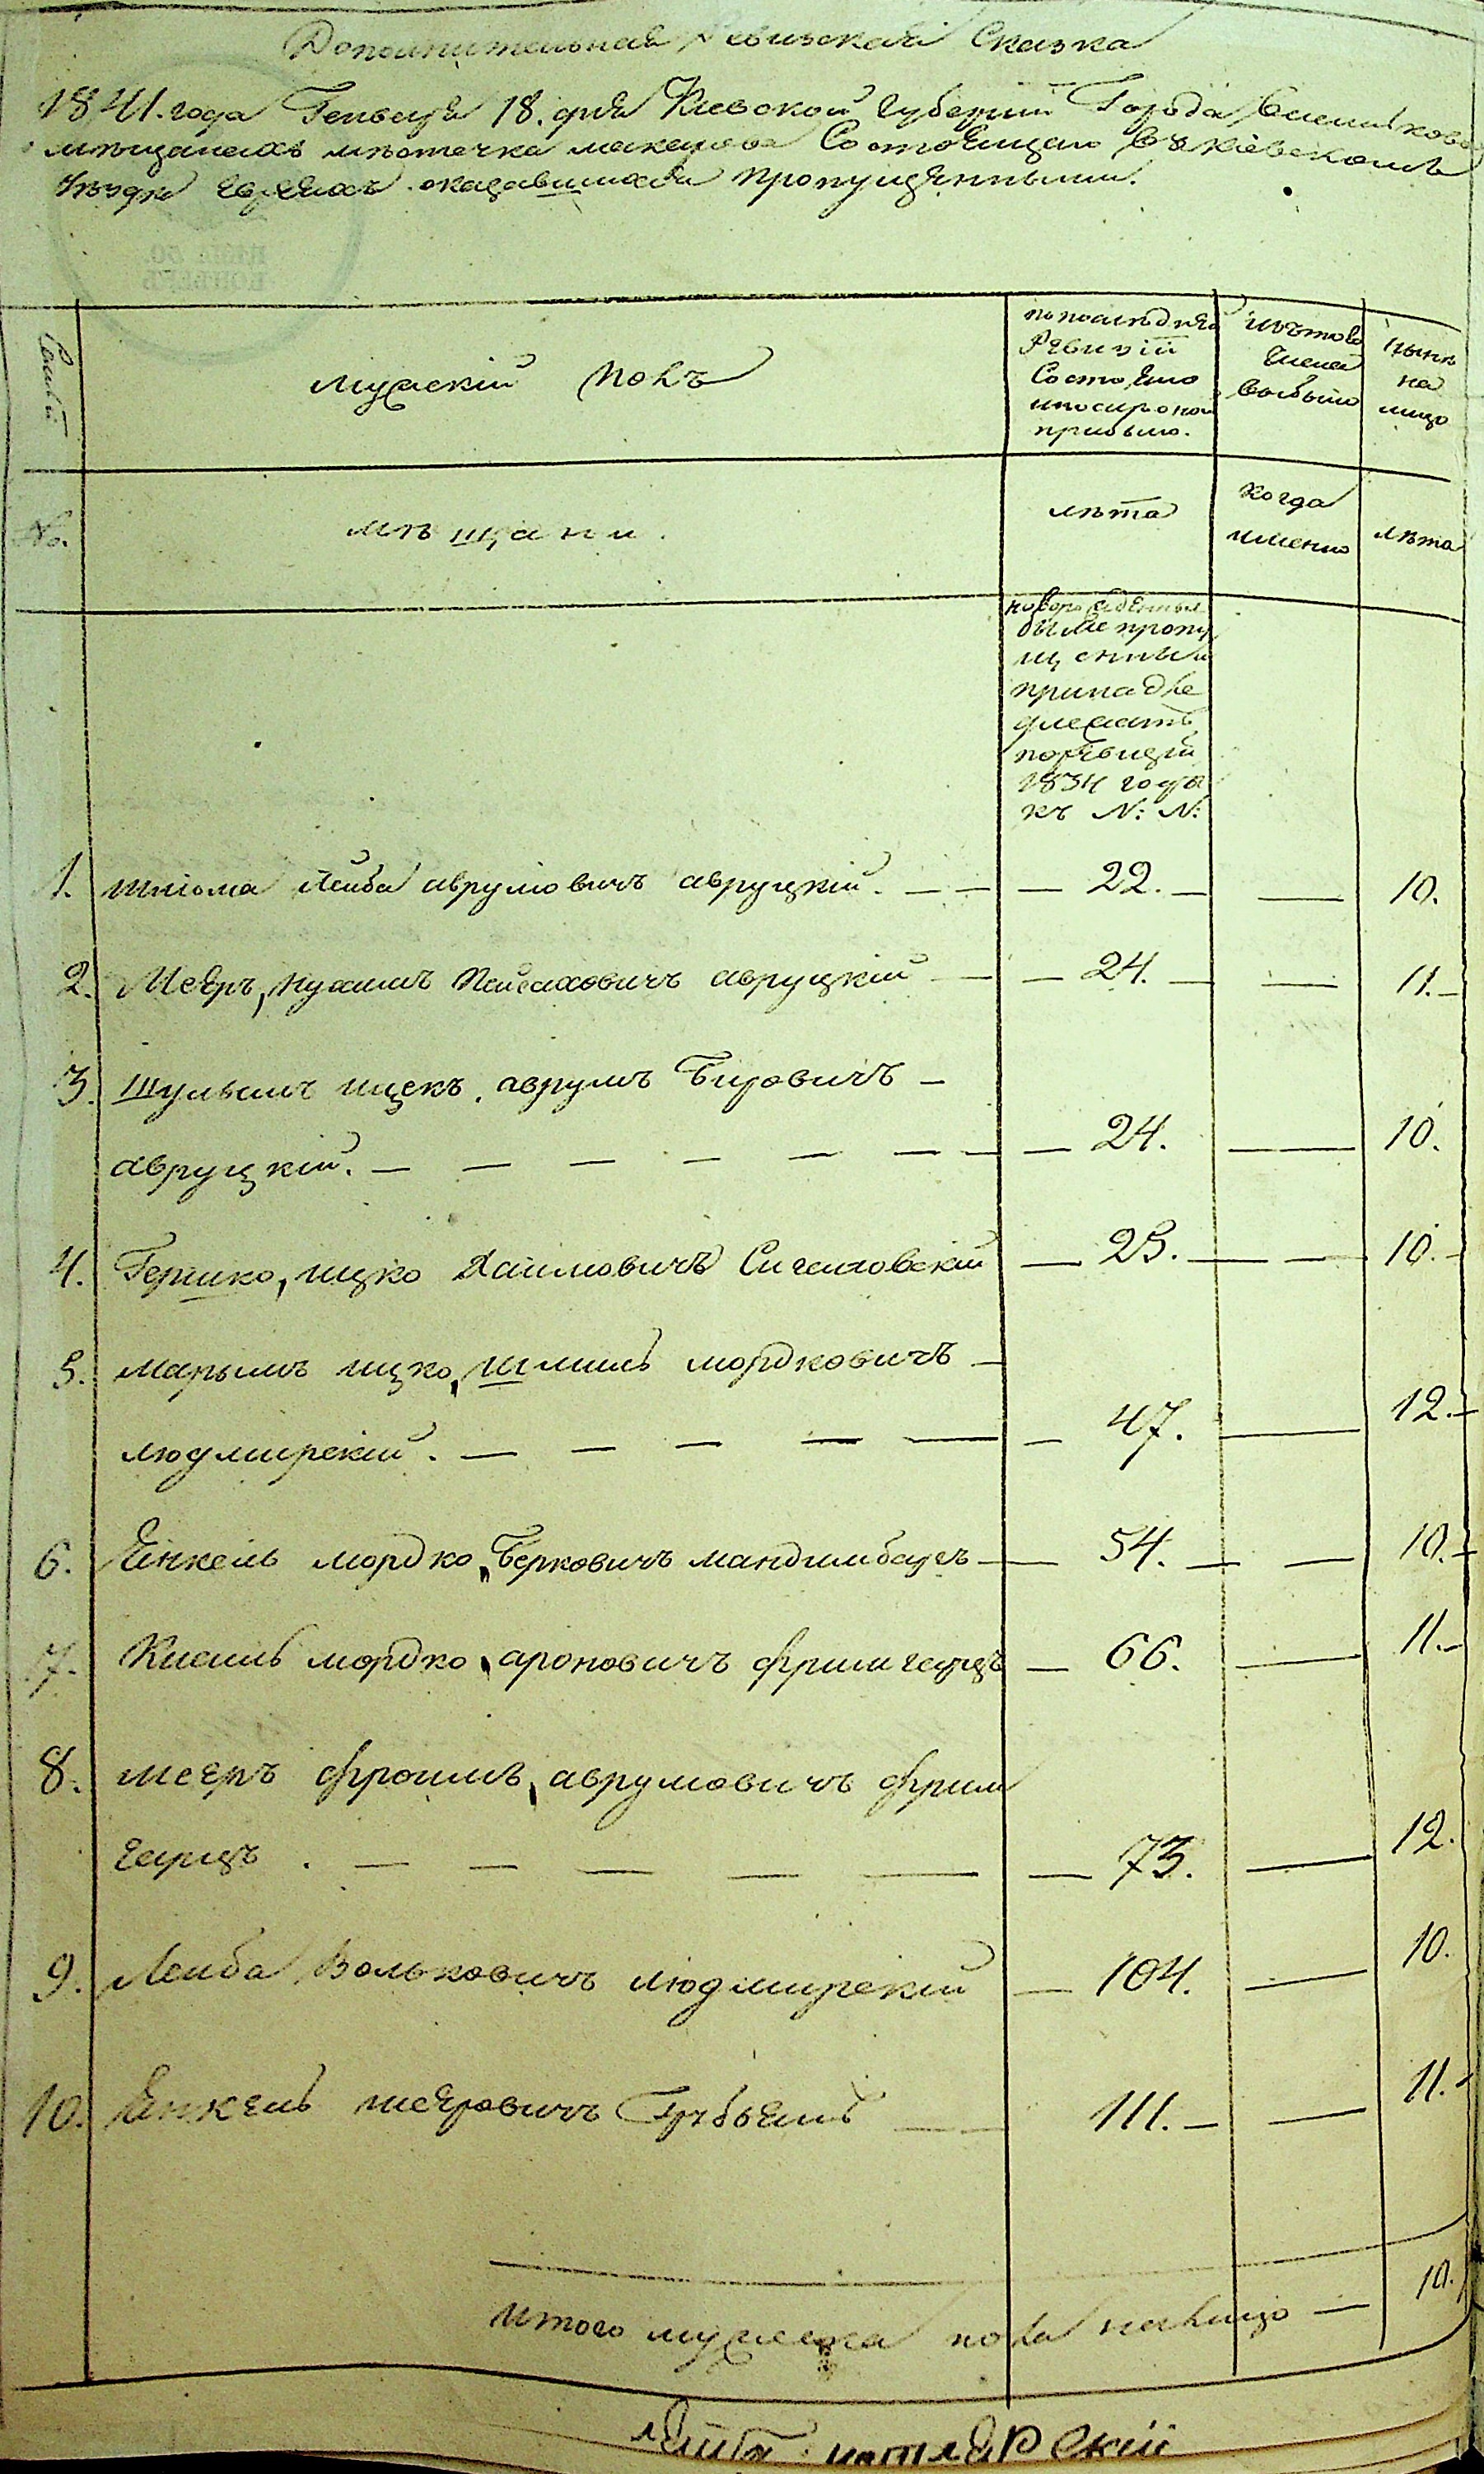 Дополнительная Ревизская Сказка
1841. года Генваря 18. дня Киевской Губернии Города Василькова
мѣщанахъ мѣстечка макарова Состоящаго въ кіевскомъ
уѣздѣ Евреяхъ оказавшихся пропущенными.
Семьи
мужескій полъ
по последней Ревизіи Состояло и после оной прибыло.
изъ того числа выбыло
нынѣ на лицо
No.
мѣщани.
лѣта
когда именно
лѣта
новорожденные были пропущенныи принадлежатъ по ревизіи 1834 года къ N: N:
1. Шліома Лейба аврумовичъ авруцкій. — — — 22. — — 10.
2. Меѣръ, Нухимъ Пейсаховичъ авруцкій — — 24. — — 11. —
3. Шульимъ ицекъ. аврумъ Бировичъ —
авруцкій. — — — — — — — — 24. — 10.
4. Гершко, ицко Хаимовичъ Сигаловскій — 25. — — 10. —
5. марьимъ ицко, Шмиль мордковичъ —
людмирскій. — — — — — — 47. — 12. —
6. Янкель мордко, Берковичъ мандимбаръ — — 54. — — 10. —
7. Кисиль мордко, ароновичъ фримгарцъ — 66. — 11. —
8. меѣръ фроимъ, аврумовичъ фрим
гарцъ. — — — — — — 73. — 12.
9. Лейба, Вольковичъ людмирскій — 104. — 10.
10. Янкель меѣровичъ — — 111. — — 11. —
Итого мужеска пола налицо — 10.
лейба